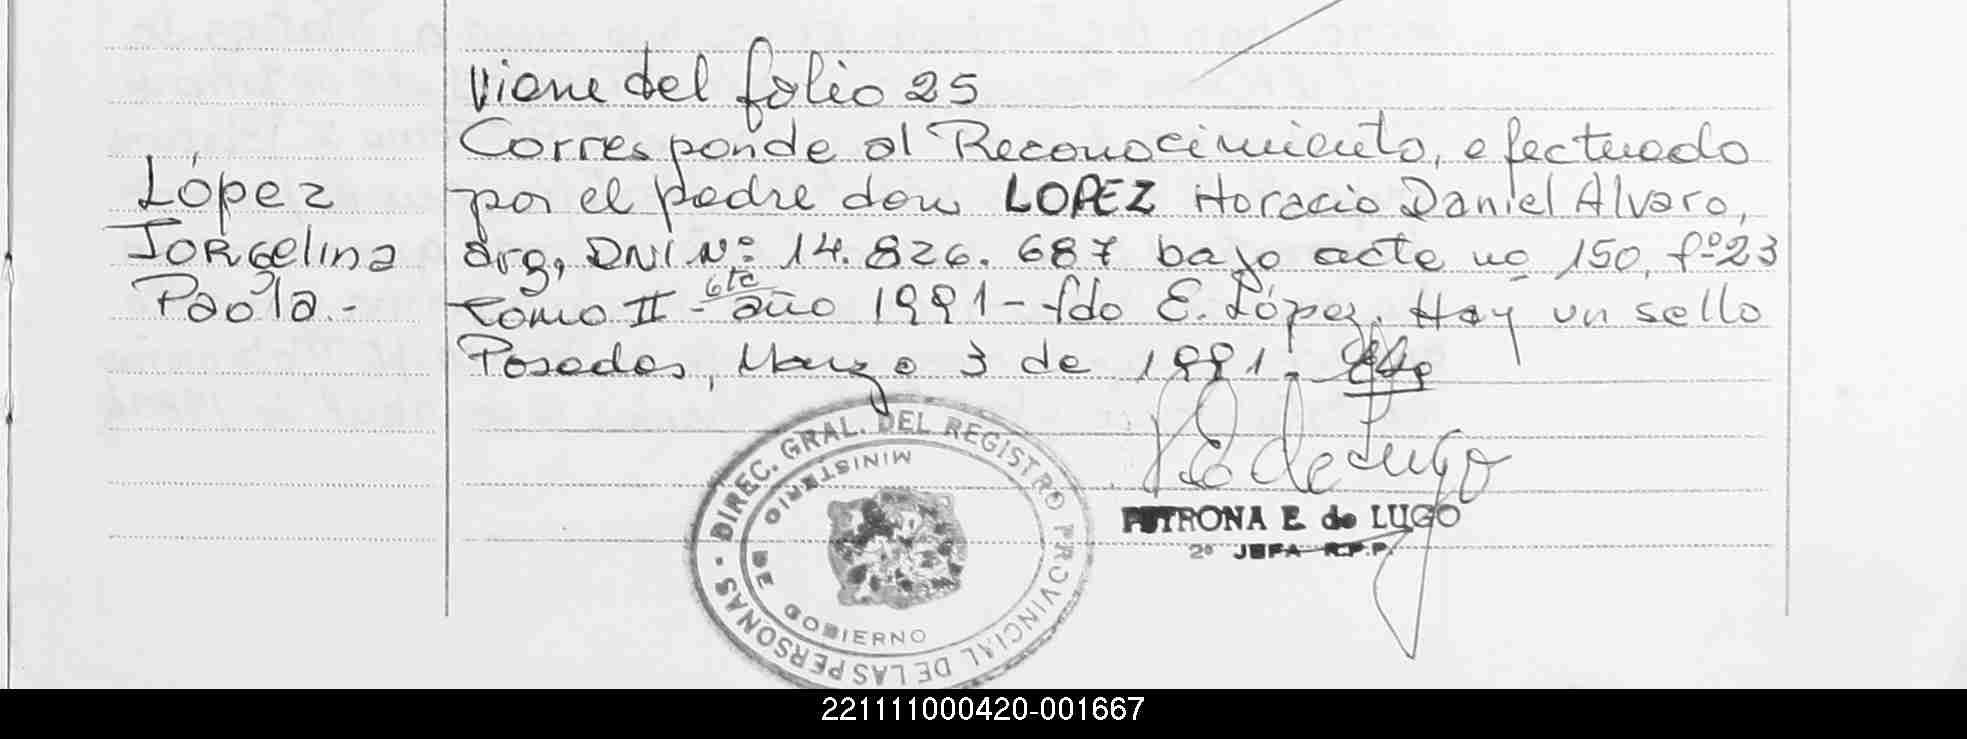 Viene del folio 25
Corresponde al Reconocimiento, efectuado
López
por el padre don LOPEZ Horacio Daniel Alvaro,
Jorgelina
arg, DNI Nº: 14.826.687 bajo acta nº 150, fº 23
Paola.-
tomo II - 6ta año 1991 - fdo E. López. Hay un sello
Posadas, Marzo 3 de 1991.
E de Lugo
PETRONA E. de LUGO
2º JEFA R.P.P.
DIREC. GRAL. DEL REGISTRO PROVINCIAL DE LAS PERSONAS -
MINISTERIO DE GOBIERNO
221111000420-001667